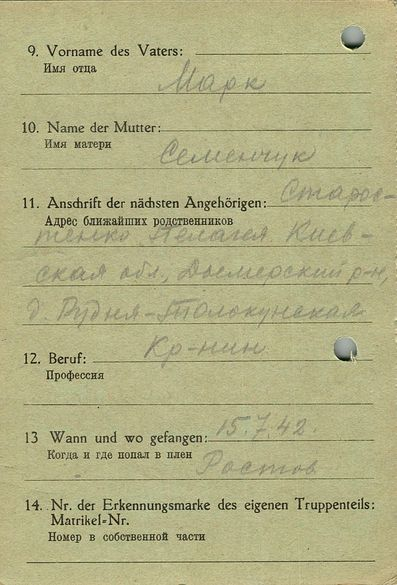 9. Vorname des Vaters:
Имя отца
Марк
10. Name der Mutter:
Имя матери
Семенчук
11. Anschrift der nächsten Angehörigen: Старос-
Адрес ближайших родственников
тенко Пелагея Киев-
ская обл., Дымерский р-н,
д. Рудня-Толокунская
12. Beruf: Кр-нин
Профессия
13 Wann und wo gefangen: 15.7.42.
Когда и где попал в плен
Ростов
14. Nr. der Erkennungsmarke des eigenen Truppenteils:
Matrikel-Nr.
Номер в собственной части